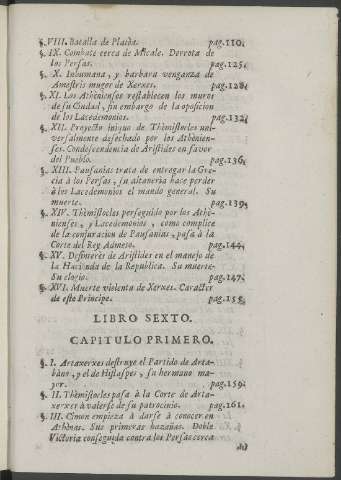 §. VIII. Batalla de Platéa. pag. 110.
§. IX. Combate cerca de Micale. Derrota de
los Persas. pag. 125.
§. X. Inhumana, y barbara venganza de
Amestris muger de Xerxes. pag. 128.
§. XI. Los Athenienses restablecen los muros
de su Ciudad, sin embargo de la oposicion
de los Lacedemonios. pag. 132.
§. XII. Proyecto iniquo de Thèmistocles uni-
versalmente desechado por los Athènien-
ses. Condescendencia de Aristides en favor
del Pueblo. pag. 136.
§. XIII. Pausanias trata de entregar la Gre-
cia à los Persas, su altaneria hace perder
à los Lacedemonios el mando general. Su
muerte. pag. 139.
§. XIV. Thèmistocles perseguido por los Athè-
nienses, y Lacedemonios, como complice
de la conjuracion de Pausanias, pasa à la
Corte del Rey Admeto. pag. 144.
§. XV. Desinterès de Aristides en el manejo de
la Hacienda de la Republica. Su muerte.
Su elogio. pag. 147.
§. XVI. Muerte violenta de Xerxes. Caracter
de este Principe. pag. 155.
LIBRO SEXTO.
CAPITULO PRIMERO.
§. I. Artaxerxes destruye el Partido de Arta-
bàno, y el de Histaspes, su hermano ma-
yor. pag. 159.
§. II. Thèmistocles pasa à la Corte de Arta-
xerxes à valerse de su patrocinio. pag. 161.
§. III. Cimon empieza à darse à conocer en
Athènas. Sus primeras hazañas. Doble
Victoria conseguida contra los Persas cerca